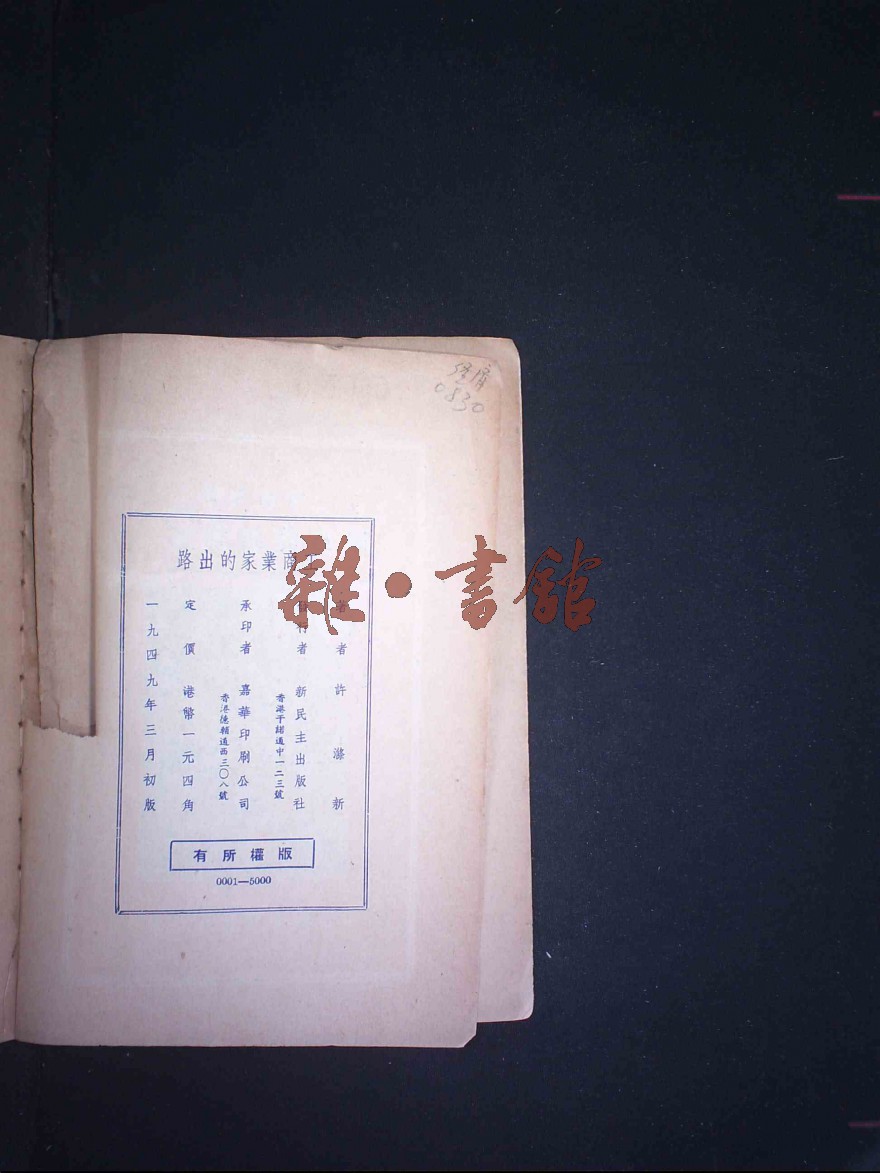 經濟
0830
路出的家業商工
著者 許滌新
發行者 新民主出版社
香港干諾道中一二三號
承印者 嘉華印刷公司
香港德輔道西三〇八號
定價 港幣一元四角
一九四九年三月初版
有所權版
0001—5000
雜·書館